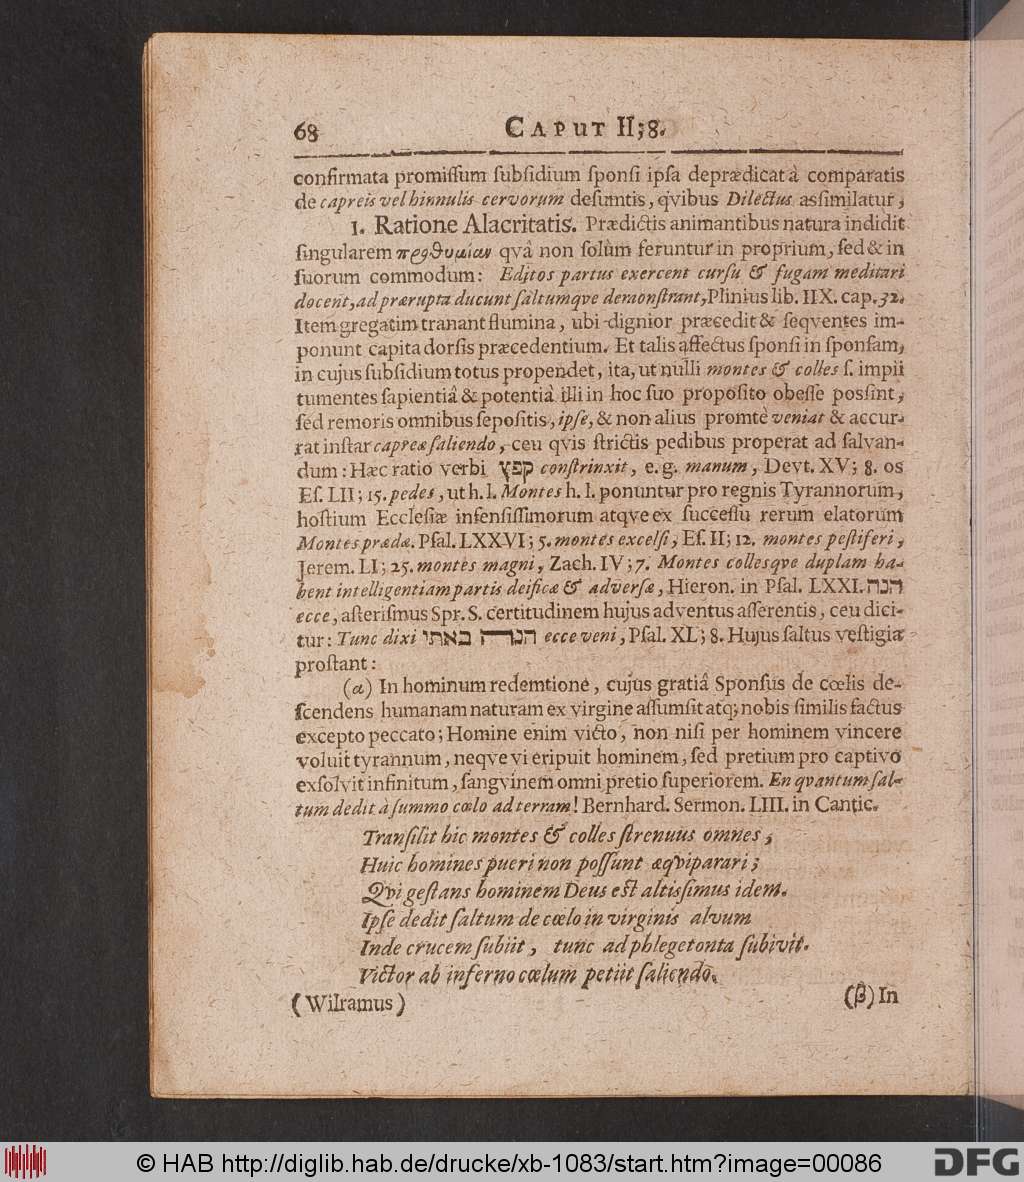 68 CAPUT II;8.
confirmata promiſſum ſubſidium ſponſi ipſa deprædicat à comparatis
de capreis vel hinnulis cervorum deſumtis, qvibus Dilectus asſimilatur,
1. Ratione Alacritatis. Prædictis animantibus natura indidit
ſingularem προθυμίαν qvâ non ſolùm feruntur in proprium, ſed & in
ſuorum commodum: Editos partus exercent curſu & fugam meditari
docent, ad prærupta ducunt ſaltumqve demonſtrant, Plinius lib. IIX. cap. 32.
Item gregatim tranant flumina, ubi dignior præcedit & ſeqventes im-
ponunt capita dorſis præcedentium. Et talis affectus ſponſi in ſponſam,
in cujus ſubſidium totus propendet, ita, ut nulli montes & colles ſ. impii
tumentes ſapientiâ & potentiâ illi in hoc ſuo propoſito obeſſe poſſint,
ſed remoris omnibus ſepoſitis, ipſe, & non alius promtè veniat & accur-
rat inſtar capreæ ſaliendo, ceu qvis ſtrictis pedibus properat ad ſalvan-
dum: Hæc ratio verbi קפץ conſtrinxit, e. g. manum, Devt. XV; 8. os
Eſ. LII; 15. pedes, ut h. l. Montes h. l. ponuntur pro regnis Tyrannorum,
hoſtium Eccleſiæ infenſiſſimorum atqve ex ſucceſſu rerum elatorum
Montes prædæ. Pſal. LXXVI; 5. montes excelſi, Eſ. II; 12. montes peſtiferi,
Jerem. LI; 25. montes magni, Zach. IV; 7. Montes collesqve duplam ha-
bent intelligentiam partis deificæ & adverſæ, Hieron. in Pſal. LXXI. הנה
ecce, aſteriſmus Spr. S. certitudinem hujus adventus aſſerentis, ceu dici-
tur: Tunc dixi הנה באתי ecce veni, Pſal. XL; 8. Hujus ſaltus veſtigia
proſtant:
(α) In hominum redemtione, cujus gratiâ Sponſus de cœlis de-
ſcendens humanam naturam ex virgine aſſumſit atq; nobis ſimilis factus
excepto peccato; Homine enim victo, non niſi per hominem vincere
voluit tyrannum, neqve vi eripuit hominem, ſed pretium pro captivo
exſolvit infinitum, ſangvinem omni pretio ſuperiorem. En qvantum ſal-
tum dedit à ſummo cœlo ad terram! Bernhard. Sermon. LIII. in Cantic.
Tranſilit hic montes & colles ſtrenuus omnes,
Huic homines pueri non poſſunt æqviparari;
Qvi geſtans hominem Deus eſt altisſimus idem.
Ipſe dedit ſaltum de cœlo in virginis alvum
Inde crucem ſubiit, tunc ad phlegetonta ſubivit.
Victor ab inferno cœlum petiit ſaliendo.
(Wilramus) (β) In
© HAB http://diglib.hab.de/drucke/xb-1083/start.htm?image=00086
DFG